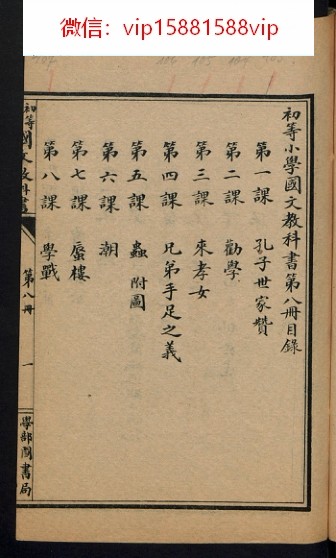 微信：vip15881588vip
初等小學國文教科書第八冊目錄
第一課　孔子世家贊
第二課　勸學
第三課　來孝女
第四課　兄弟手足之義
第五課　蟲　附圖
第六課　潮
第七課　蜃樓
第八課　學戰
初等國文教科書
第八冊
一
學部圖書局